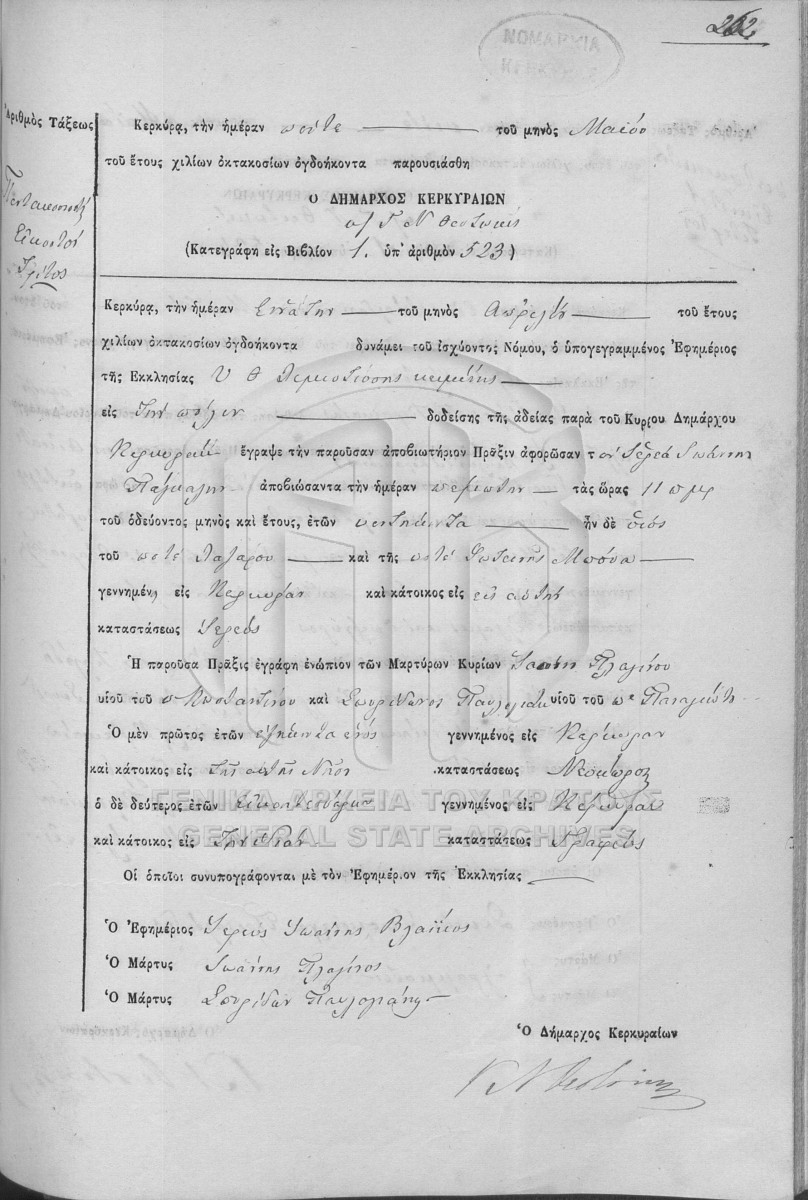 262
ΝΟΜΑΡΧΙΑ
ΚΕΡΚΥΡΑΣ
Ἀριθμὸς Τάξεως
Πεντακοσιοστὸς
Εἰκοστὸς
Τρίτος
Κερκύρα, τὴν ἡμέραν πέντε τοῦ μηνὸς Μαΐου
τοῦ ἔτους χιλίων ὀκτακοσίων ὀγδοήκοντα παρουσιάσθη
Ο ΔΗΜΑΡΧΟΣ ΚΕΡΚΥΡΑΙΩΝ
Γ Ν Θεοτόκης
(Κατεγράφη εἰς Βιβλίον 1. ὑπ' ἀριθμὸν 523)
Κερκύρα, τὴν ἡμέραν ἐννάτην τοῦ μηνὸς Ἀπριλίου τοῦ ἔτους
χιλίων ὀκτακοσίων ὀγδοήκοντα δυνάμει τοῦ ἰσχύοντος Νόμου, ὁ ὑπογεγραμμένος Ἐφημέριος
τῆς Ἐκκλησίας Υ Θ
εἰς τὴν πόλιν δοθείσης τῆς ἀδείας παρὰ τοῦ Κυρίου Δημάρχου
Κερκυραίων ἔγραψε τὴν παροῦσαν ἀποβιωτήριον Πρᾶξιν ἀφορῶσαν τὸν Ἱερέα Ἰωάννην
ἀποβιώσαντα τὴν ἡμέραν πέμπτην τὰς ὥρας 11 π μς
τοῦ ὁδεύοντος μηνὸς καὶ ἔτους, ἐτῶν πεντήκοντα ἦν δὲ υἱὸς
τοῦ ποτὲ Λαζάρου καὶ τῆς ποτὲ Φωτεινῆς Μπόνα
γεννημέν. εἰς Κέρκυραν καὶ κάτοικος εἰς ἐν αὐτῇ
καταστάσεως Ἱερεὺς
Ἡ παροῦσα Πρᾶξις ἐγράφη ἐνώπιον τῶν Μαρτύρων Κυρίων Ἰωάννη
υἱοῦ τοῦ π Κωσταντίνου καὶ Σπυρίδωνος υἱοῦ τοῦ πε Παναγιώτη
Ὁ μὲν πρῶτος ἐτῶν ἑξήκοντα ἑνὸς γεννημένος εἰς Κέρκυραν
καὶ κάτοικος εἰς τῆς αὐτῆς Νήσου καταστάσεως Νεωκόρος
ὁ δὲ δεύτερος ἐτῶν γεννημένος εἰς Κέρκυραν
καὶ κάτοικος εἰς τὴν ἰδίαν καταστάσεως Γραφεὺς
Οἱ ὁποῖοι συνυπογράφονται μὲ τὸν Ἐφημέριον τῆς Ἐκκλησίας
Ὁ Ἐφημέριος Ἱερεὺς Ἰωάννης Βλαΐκος
Ὁ Μάρτυς Ἰωάννης
Ὁ Μάρτυς Σπυρίδων
Ὁ Δήμαρχος Κερκυραίων
Γ Ν Θεοτόκης
ΓΕΝΙΚΑ ΑΡΧΕΙΑ ΤΟΥ ΚΡΑΤΟΥΣ
GENERAL STATE ARCHIVES